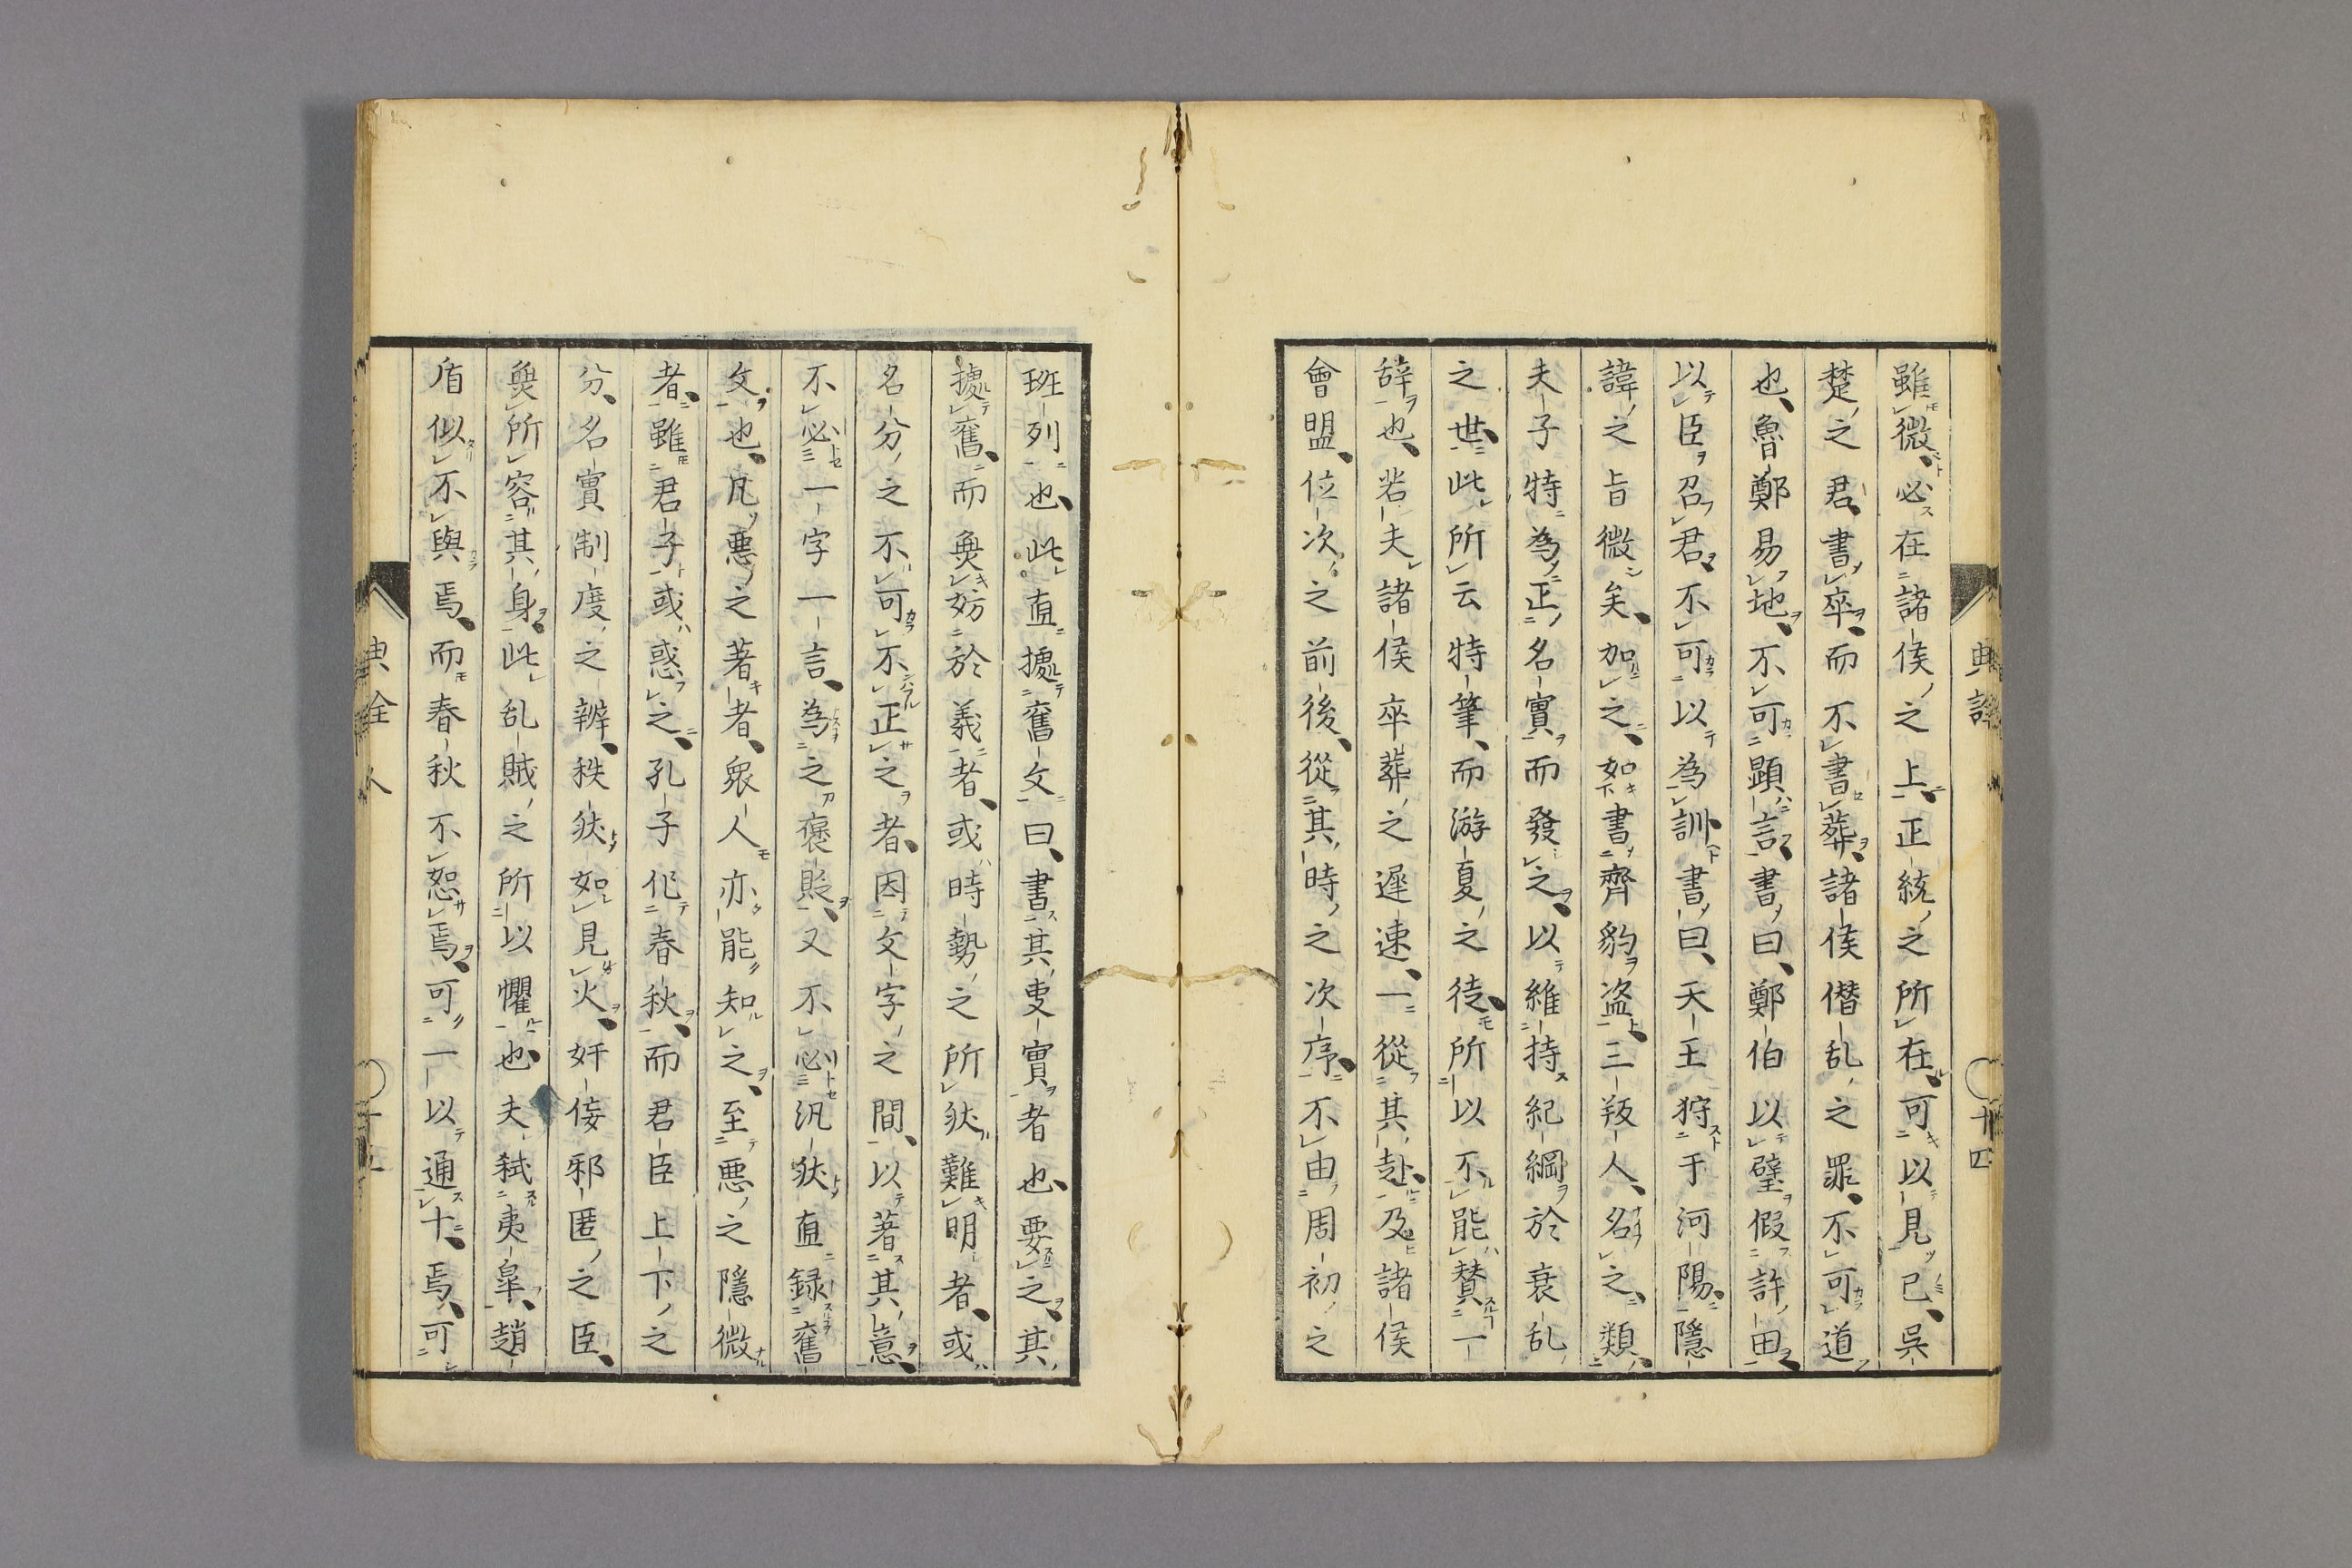 雖微必在諸侯之上正統之所在可以見已呉
楚之君書卒而不書葬諸侯僭乱之罪不可道
也魯鄭易地不可顕言書曰鄭伯以璧假許田
以臣召君不可以為訓書曰天王狩于河陽隱
諱之旨微矣加之如書齊豹盗三叛人名之類
夫子特為正名實而發之以維持紀綱於衰乱
之世此所云特筆而游夏之徒所以不能賛一
辞也若夫諸侯卒葬之遲速一從其赴及諸侯
會盟位次之前後從其時之次序不由周初之
班列也此直據舊文曰書其叓實者也要之其
據舊而奐妨於義者或時勢之所狀難明者或
名分之不可不正之者因文字之間以著其意
不必一字一言為之褒貶又不必汎狀直録舊
文也凡悪之著者衆人亦能知之至悪之隱微
者雖君子或惑之孔子作春秋而君臣上下之
分名實制度之辨秩狀如見火奸佞邪匿之臣
奐所容其身此乱賊之所以懼也夫弒夷皐趙
盾似不與焉而春秋不恕焉可一以通十焉可